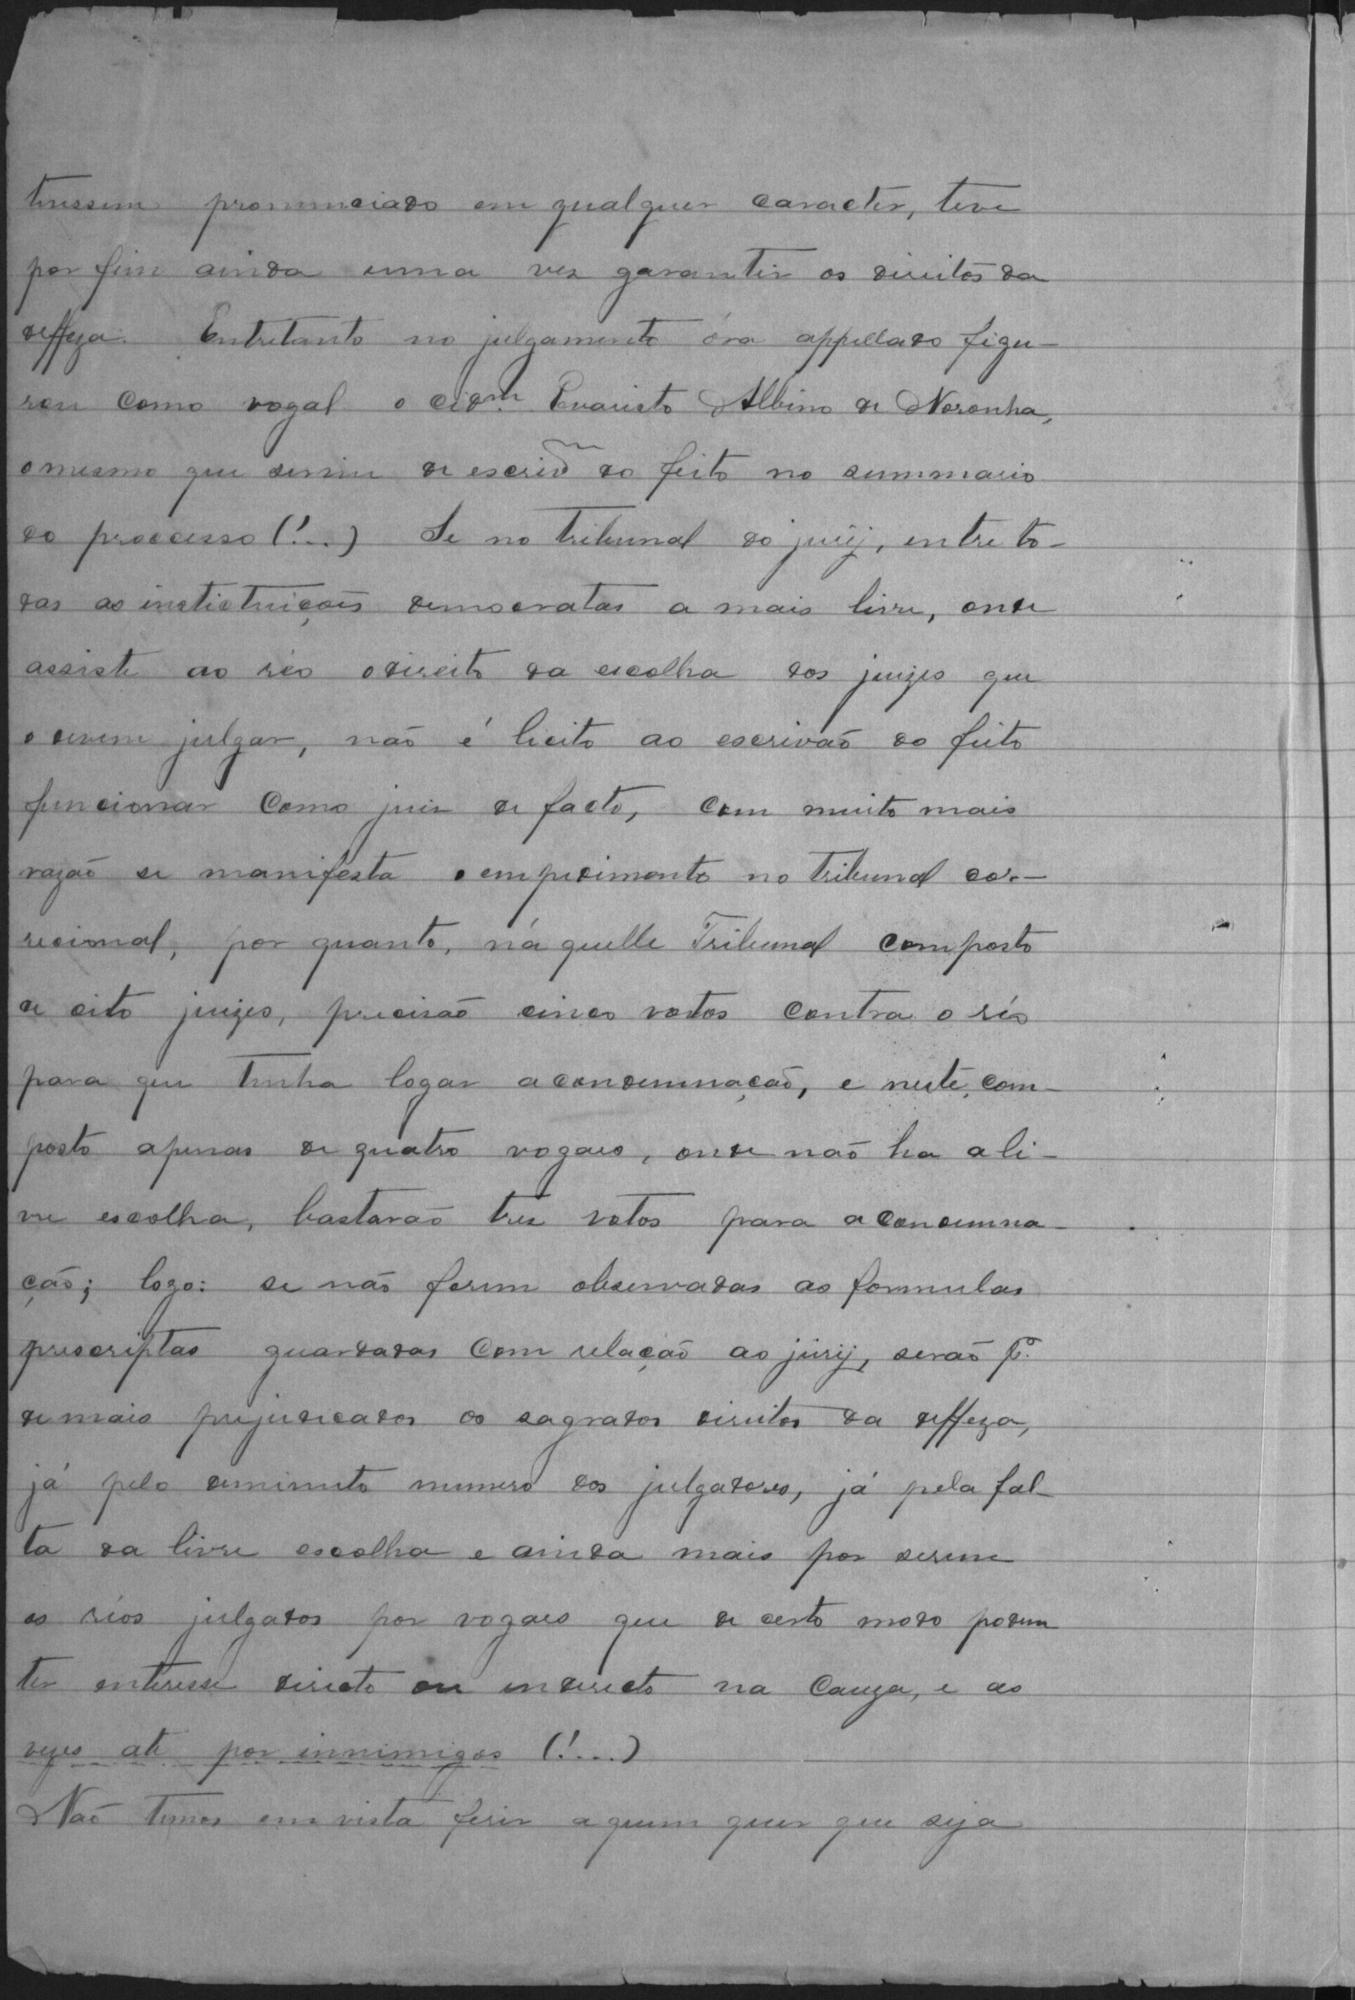 tivessem pronunciado em qualquer caracter, teve
por fim ainda uma vez garantir os direitos da
deffeza. Entretanto no julgamento óra appellado figu-
rou como vogal o cidm. Evaristo Albino de Noronha,
o mesmo que serviu de escrivã do feito no summario
do processo (!...) Se no Tribunal do jurij, entre to-
das as instictuições democratas a mais livre, onde
assiste ao réo o direito da escolha dos juizes que
o devem julgar, não é licito ao escrivão do feito
funcionar como juiz de facto, com muito mais
razão se manifesta o empedimento no Tribunal cor-
recional, por quanto, náquelle Tribunal composto
de oito juizes, precisão cinco vottos contra o réo
para que tenha logar a condemnação, e neste, com-
posto apenas de quatro vogaes, onde não ha a li-
vre escolha, bastarão tres votos para a condemna-
ção; logo: se não forem observadas as formulas
prescriptas guardadas com relação ao jurij, serão pº.
demais prejudicados os sagrados direitos da deffeza,
já pelo deminuto numero dos julgadores, já pela fal-
ta da livre escolha e ainda mais por serem
os réos julgados por vogaes que de certo modo podem
ter enteresse directo ou indirecto na cauza, e as
vezes até por innimigos (!...)
Não temos em vista ferir a quem quer que seja